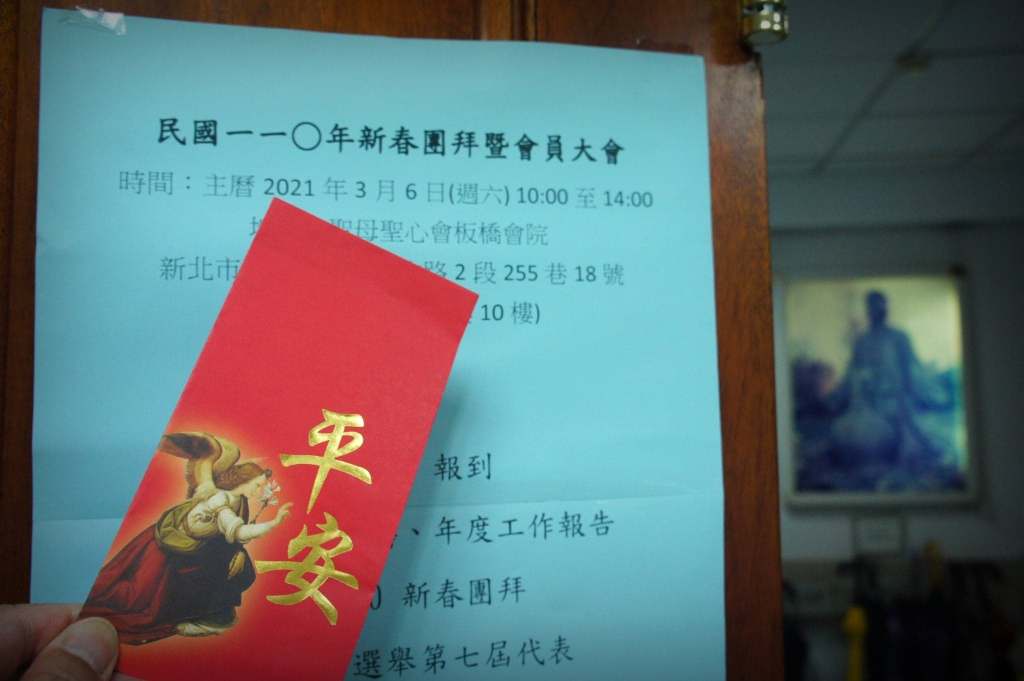 民國一一〇年新春團拜暨會員大會
時間：主曆 2021 年 3 月 6 日(週六) 10:00 至 14:00
聖母聖心會板橋會院
新北市 路 2 段 255 巷 18 號
10 樓)
報到
、年度工作報告
) 新春團拜
選舉第七屆代表
平安